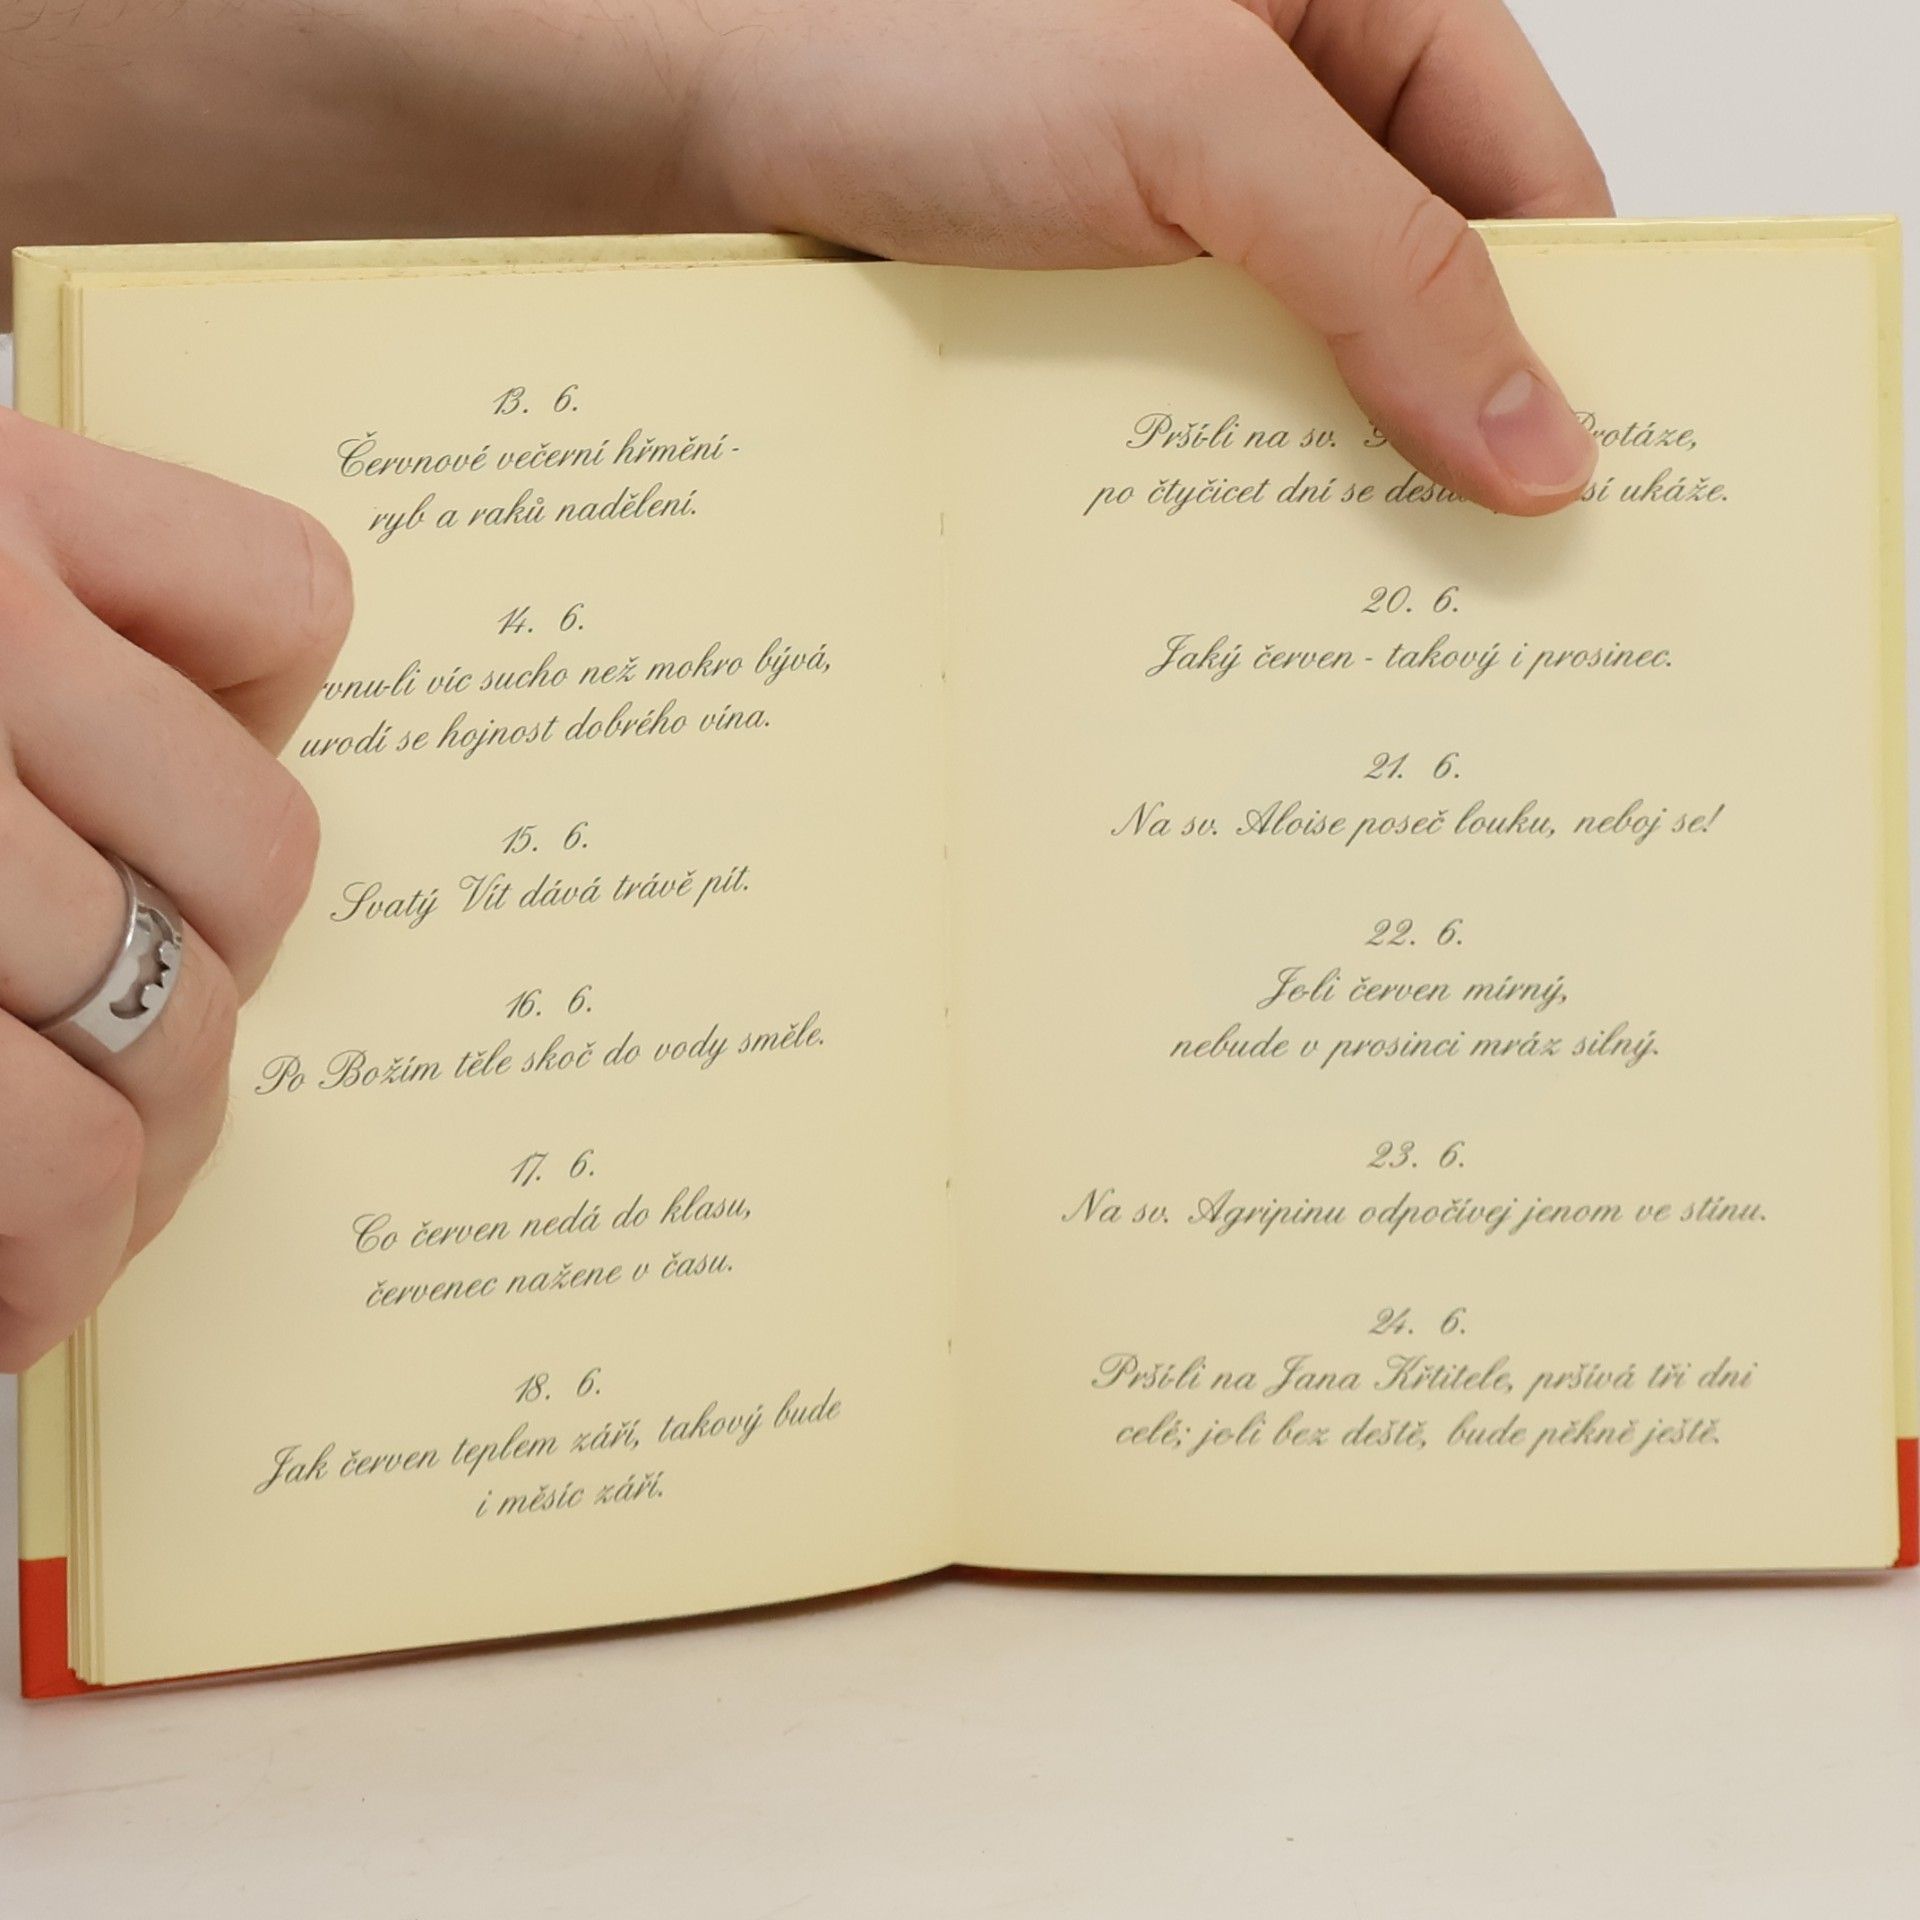 13. 6.
Červnové večerní hřmění -
ryb a raků nadělení.
14. 6.
víc sucho než mokro bývá,
urodí se hojnost dobrého vína.
15. 6.
Svatý Vít dává trávě pít.
16. 6.
Po Božím těle skoč do vody směle.
17. 6.
Co červen nedá do klasu,
červenec nažene v času.
18. 6.
Jak červen teplem září, takový bude
i měsíc září.
Prší-li na sv.
po čtyčicet dní se ukáže.
20. 6.
Jaký červen - takový i prosinec.
21. 6.
Na sv. Aloise poseč louku, neboj se!
22. 6.
Je-li červen mírný,
nebude v prosinci mráz silný.
23. 6.
Na sv. Agripinu odpočívej jenom ve stínu.
24. 6.
Prší-li na Jana Křtitele, pršívá tři dni
celé; je-li bez deště, bude pěkně ještě.